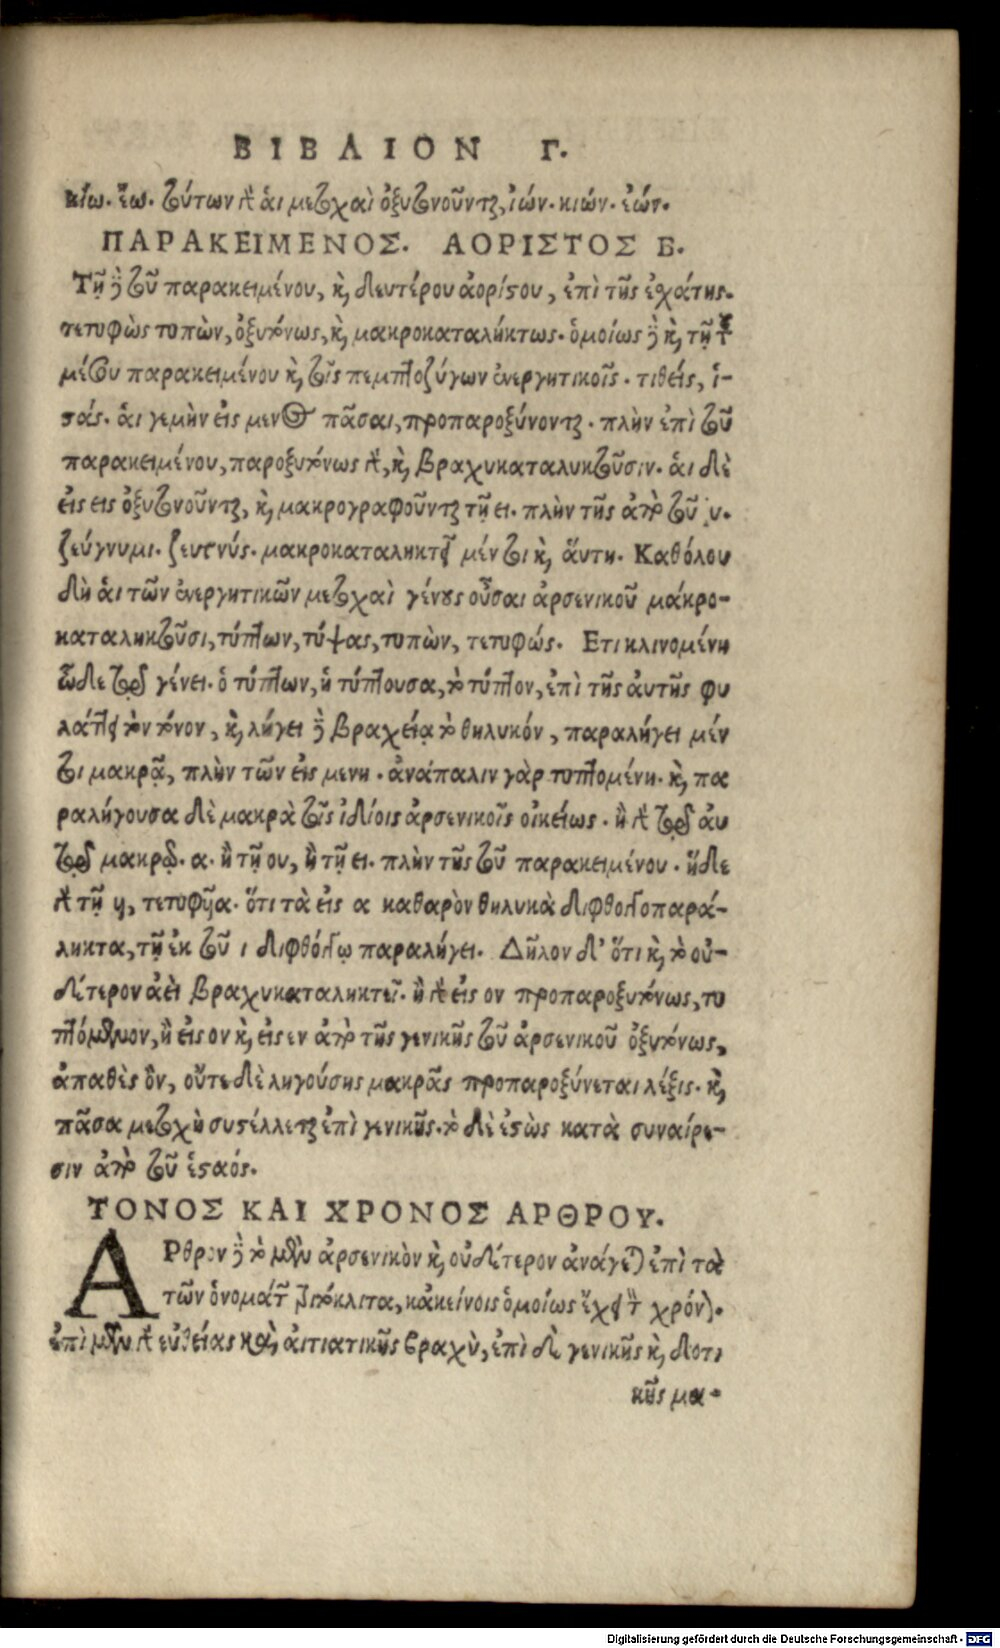 ΒΙΒΛΙΟΝ Γ.
κίω. ἔω. τούτων δὲ αἱ μετοχαὶ ὀξυτονοῦνται, ἰών. κιών. ἐών.
ΠΑΡΑΚΕΙΜΕΝΟΣ. ΑΟΡΙΣΤΟΣ Β.
Τῇ δὲ τοῦ παρακειμένου, καὶ δευτέρου ἀορίστου, ἐπὶ τῆς ἐσχάτης.
τετυφὼς τυπὼν, ὀξυτόνως, καὶ μακροκαταλήκτως. ὁμοίως δὲ καὶ τῇ τοῦ
μέσου παρακειμένου καὶ τοῖς πεμπτοζύγων ἐνεργητικοῖς. τιθείς, ἱ-
στάς. αἱ γεμὴν εἰς μενος πᾶσαι, προπαροξύνονται. πλὴν ἐπὶ τοῦ
παρακειμένου, παροξυτόνως δὲ, καὶ βραχυκαταλυκτοῦσιν. αἱ δὲ
εἰς εις ὀξυτονοῦνται, καὶ μακρογραφοῦνται τῇ ει. πλὴν τῆς ἀπὸ τοῦ υ.
ζεύγνυμι. ζευγνύς. μακροκαταληκτεῖ μέν τοι καὶ αὕτη. Καθόλου
δὴ αἱ τῶν ἐνεργητικῶν μετοχαὶ γένους οὖσαι ἀρσενικοῦ μάκρο-
καταληκτοῦσι, τύπτων, τύψας, τυπὼν, τετυφώς. Ετι κλινομένη
ὧδε τῷ γένει. ὁ τύπτων, ἡ τύπτουσα, τὸ τύπτον, ἐπὶ τῆς αὐτῆς φυ
λάττει τὸν τόνον, καὶ λήγει δὲ βραχείᾳ τὸ θηλυκόν, παραλήγει μέν
τοι μακρᾷ, πλὴν τῶν εἰς μενη. ἀνάπαλιν γὰρ τυπτομένη. καὶ πα
ραλήγουσα δὲ μακρὰ τοῖς ἰδίοις ἀρσενικοῖς οἰκείως. ἢ δὲ τῷ αὐ
τῷ μακρῷ. α. ἢ τῇ ου, ἢ τῇ ει. πλὴν τῆς τοῦ παρακειμένου. ἥδε
δὲ τῇ υι, τετυφυῖα. ὅτι τὰ εἰς α καθαρὸν θηλυκὰ διφθογγοπαρά-
ληκτα, τῇ ἐκ τοῦ ι διφθόγγῳ παραλήγει. Δῆλον δ' ὅτι καὶ τὸ οὐ-
δέτερον ἀεὶ βραχυκαταληκτεῖ. ἢ δὲ εἰς ον προπαροξυτόνως, τυ
πτόμενον, ἢ εἰς ον καὶ εἰς εν ἀπὸ τῆς γενικῆς τοῦ ἀρσενικοῦ ὀξυτόνως,
ἀπαθὲς ὂν, οὔτε δὲ ληγούσης μακρᾶς προπαροξύνεται λέξις. καὶ
πᾶσα μετοχὴ συστέλλεται ἐπὶ γενικῆς. τὸ δὲ ἑστὼς κατὰ συναίρε-
σιν ἀπὸ τοῦ ἑσταός.
ΤΟΝΟΣ ΚΑΙ ΧΡΟΝΟΣ ΑΡΘΡΟΥ.
ΑΡθρον δὲ τὸ μὲν ἀρσενικὸν καὶ οὐδέτερον ἀνάγεται ἐπὶ τὰ
τῶν ὀνομάτων ἰσόκλιτα, κἀκείνοις ὁμοίως ἔχει τὸν χρόνον.
ἐπὶ μὲν δὲ εὐθείας καὶ αἰτιατικῆς βραχὺ, ἐπὶ δὲ γενικῆς καὶ δοτι
κῆς μα-
Digitalisierung gefördert durch die Deutsche Forschungsgemeinschaft - DFG